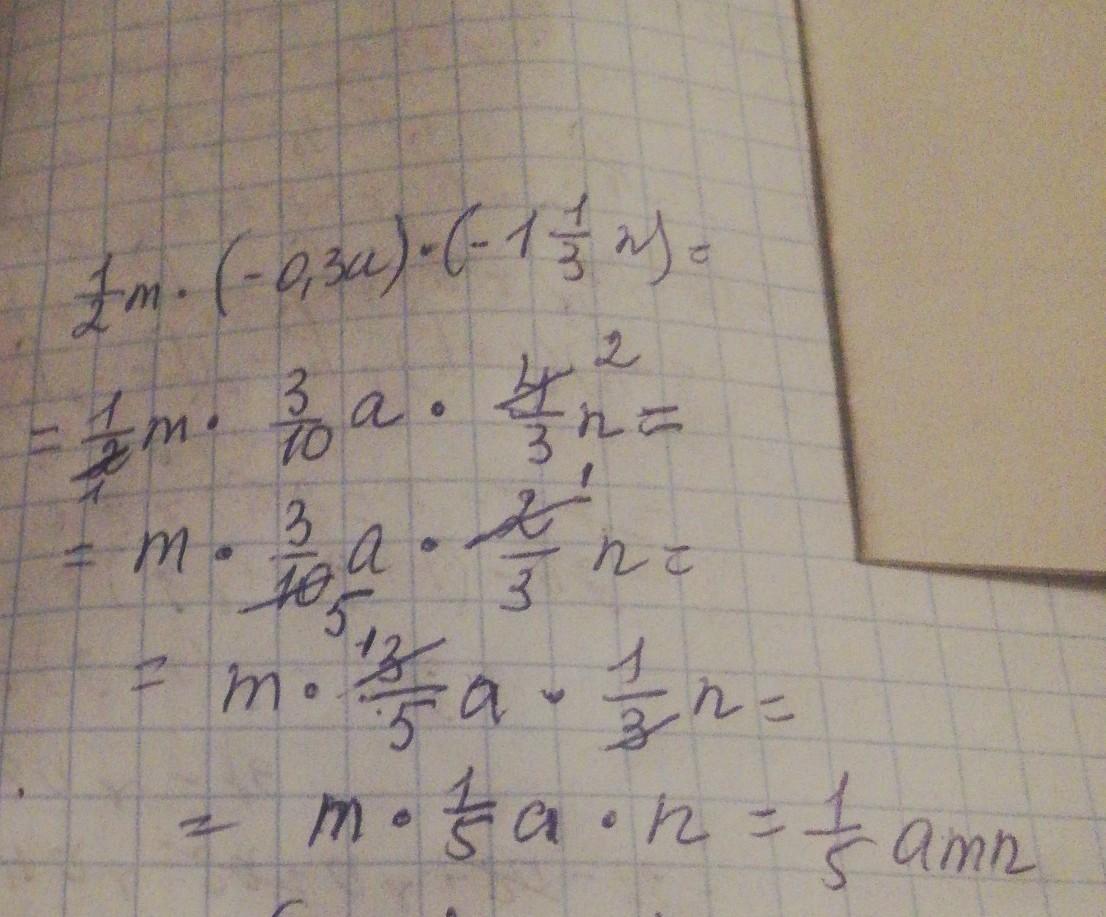 1/2 m · (-0,3a) · (-1 1/3 n) =
= 1/2 1 m · 3/10 a · 4/3 2 n =
= m · 3/10 5 a · 2/3 1 n =
= m · 1 3/5 a · 1/3 n =
= m · 1/5 a · n = 1/5 amn